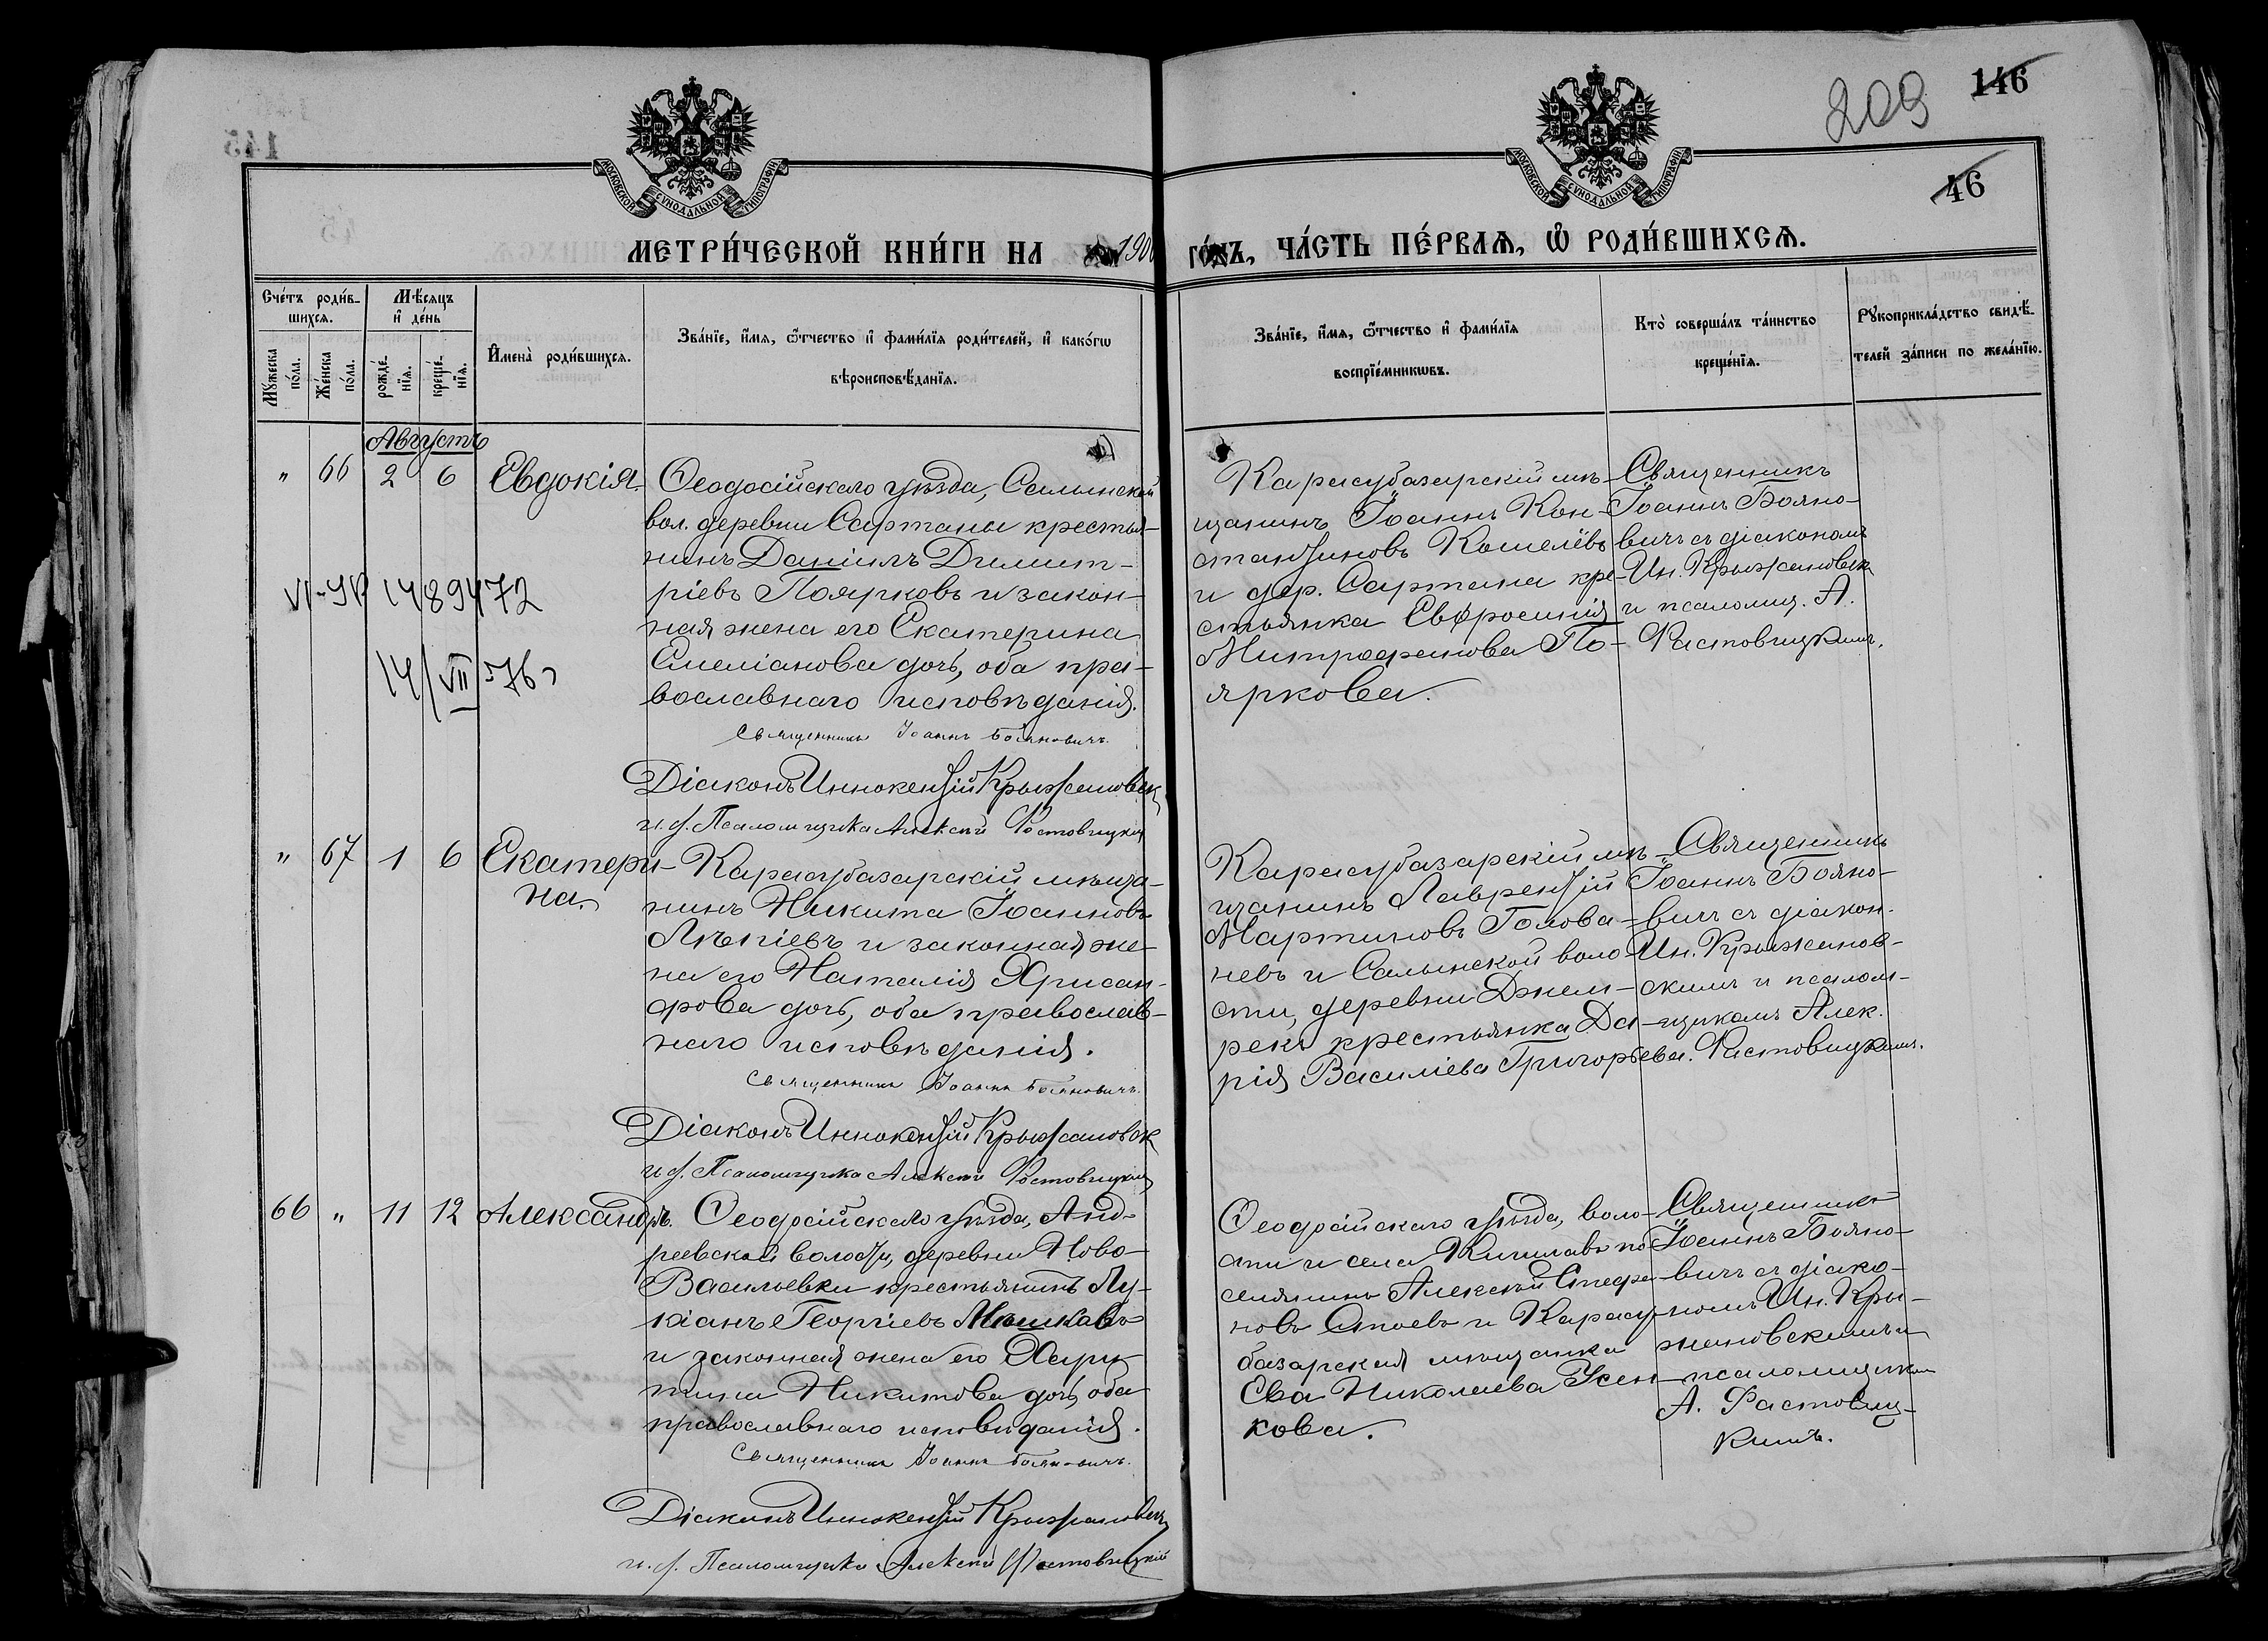 146
209
46
145
МОСКОВСКОЙ СУНОДАЛЬНОЙ ТИПОГРАФІИ
МОСКОВСКОЙ СУНОДАЛЬНОЙ ТИПОГРАФІИ
МЕТРИ́ЧЕСКОЙ КНИ́ГИ НА 1900 ГО́ДЪ, ЧА́СТЬ ПЕ́РВАѦ, Ѽ РОДИ́ВШИХСѦ.
Сче́тъ роди́в-
шихсѧ.
Мꙋ́жеска по́ла.
Же́нска по́ла.
Мѣ́сѧцъ
и҆ де́нь
рожде́-
нїѧ.
креще́-
нїѧ.
И҆мена̀ роди́вшихсѧ.
Зва́нїе, и҆́мѧ, ѻ҆́тчество и҆ фами́лїѧ роди́телей, и҆ како́гѡ
вѣроисповѣ́данїѧ.
Зва́нїе, и҆́мѧ, ѻ҆́тчество и҆ фами́лїѧ
воспрїе́мникѡвъ.
Кто̀ соверша́лъ та́инство
креще́нїѧ.
Рꙋкоприкла́дство свидѣ́-
телей за́писи по жела́нїю.
Августъ
" 66 2 6 Евдокія.
Ѳеодосійскаго уѣзда, Салынской
вол. деревни Сартаны крестья-
нинъ Даніилъ Димит-
ріевъ Поярковъ и закон-
ная жена его Екатерина
Емеліанова дочь, оба пра-
вославнаго исповѣданія.
Священникъ Іоаннъ Бояновичъ.
Діаконъ Иннокентій Крыжановск
и. д. Псаломщика Алексѣй Фастовицкій
14/VII 76
Карасубазарскій мѣ-
щанинъ Іоаннъ Кон-
стантиновъ Кошелевъ
и дер. Сартана кре-
стьянка Евфросинія
Митрофанова По-
яркова.
Священникъ
Іоаннъ Бояно-
вичъ съ діакономъ
Ин. Крыжановск
и псаломщ. А.
Фастовицкимъ.
" 67 1 6 Екатери-
на.
Карасубазарскій мѣща-
нинъ Никита Іоанновъ
и законная же-
на его Наталія Хрисан-
фова дочь, оба православ-
наго исповѣданія.
Священникъ Іоаннъ Бояновичъ.
Діаконъ Иннокентій Крыжановск
и. д. Псаломщика Алексѣй Фастовицкій
Карасубазарскій мѣ-
щанинъ Лаврентій
Мартиновъ Голова-
невъ и Салынской воло
сти, деревни Джел-
рекъ крестьянка Да-
рія Василіева Григорьева.
Священникъ
Іоаннъ Бояно-
вичъ съ діакон.
Ин. Крыжанов-
скимъ и псалом-
щикомъ Алек.
Фастовицкимъ.
66 " 11 12 Александръ.
Ѳеодосійскаго уѣзда, Анд-
реевской волости, деревни Ново-
Васильевки крестьянинъ Лу-
кіанъ Георгіевъ Мошкавъ
и законная жена его Хари-
тина Никитова дочь, оба
православнаго исповѣданія.
Священникъ Іоаннъ Бояновичъ.
Діаконъ Иннокентій Крыжановск
и. д. Псаломщика Алексѣй Фастовицкій
Ѳеодосійскаго уѣзда, воло-
сти и села Кишлавъ по
селянинъ Алексѣй Стефа-
новъ Стоевъ и Карасу-
базарская мѣщанка
Ева Николаева Усен-
кова.
Священникъ
Іоаннъ Бояно-
вичъ съ діако-
номъ Ин. Кры-
жановскимъ и
псаломщиком
А. Фастовиц-
кимъ.